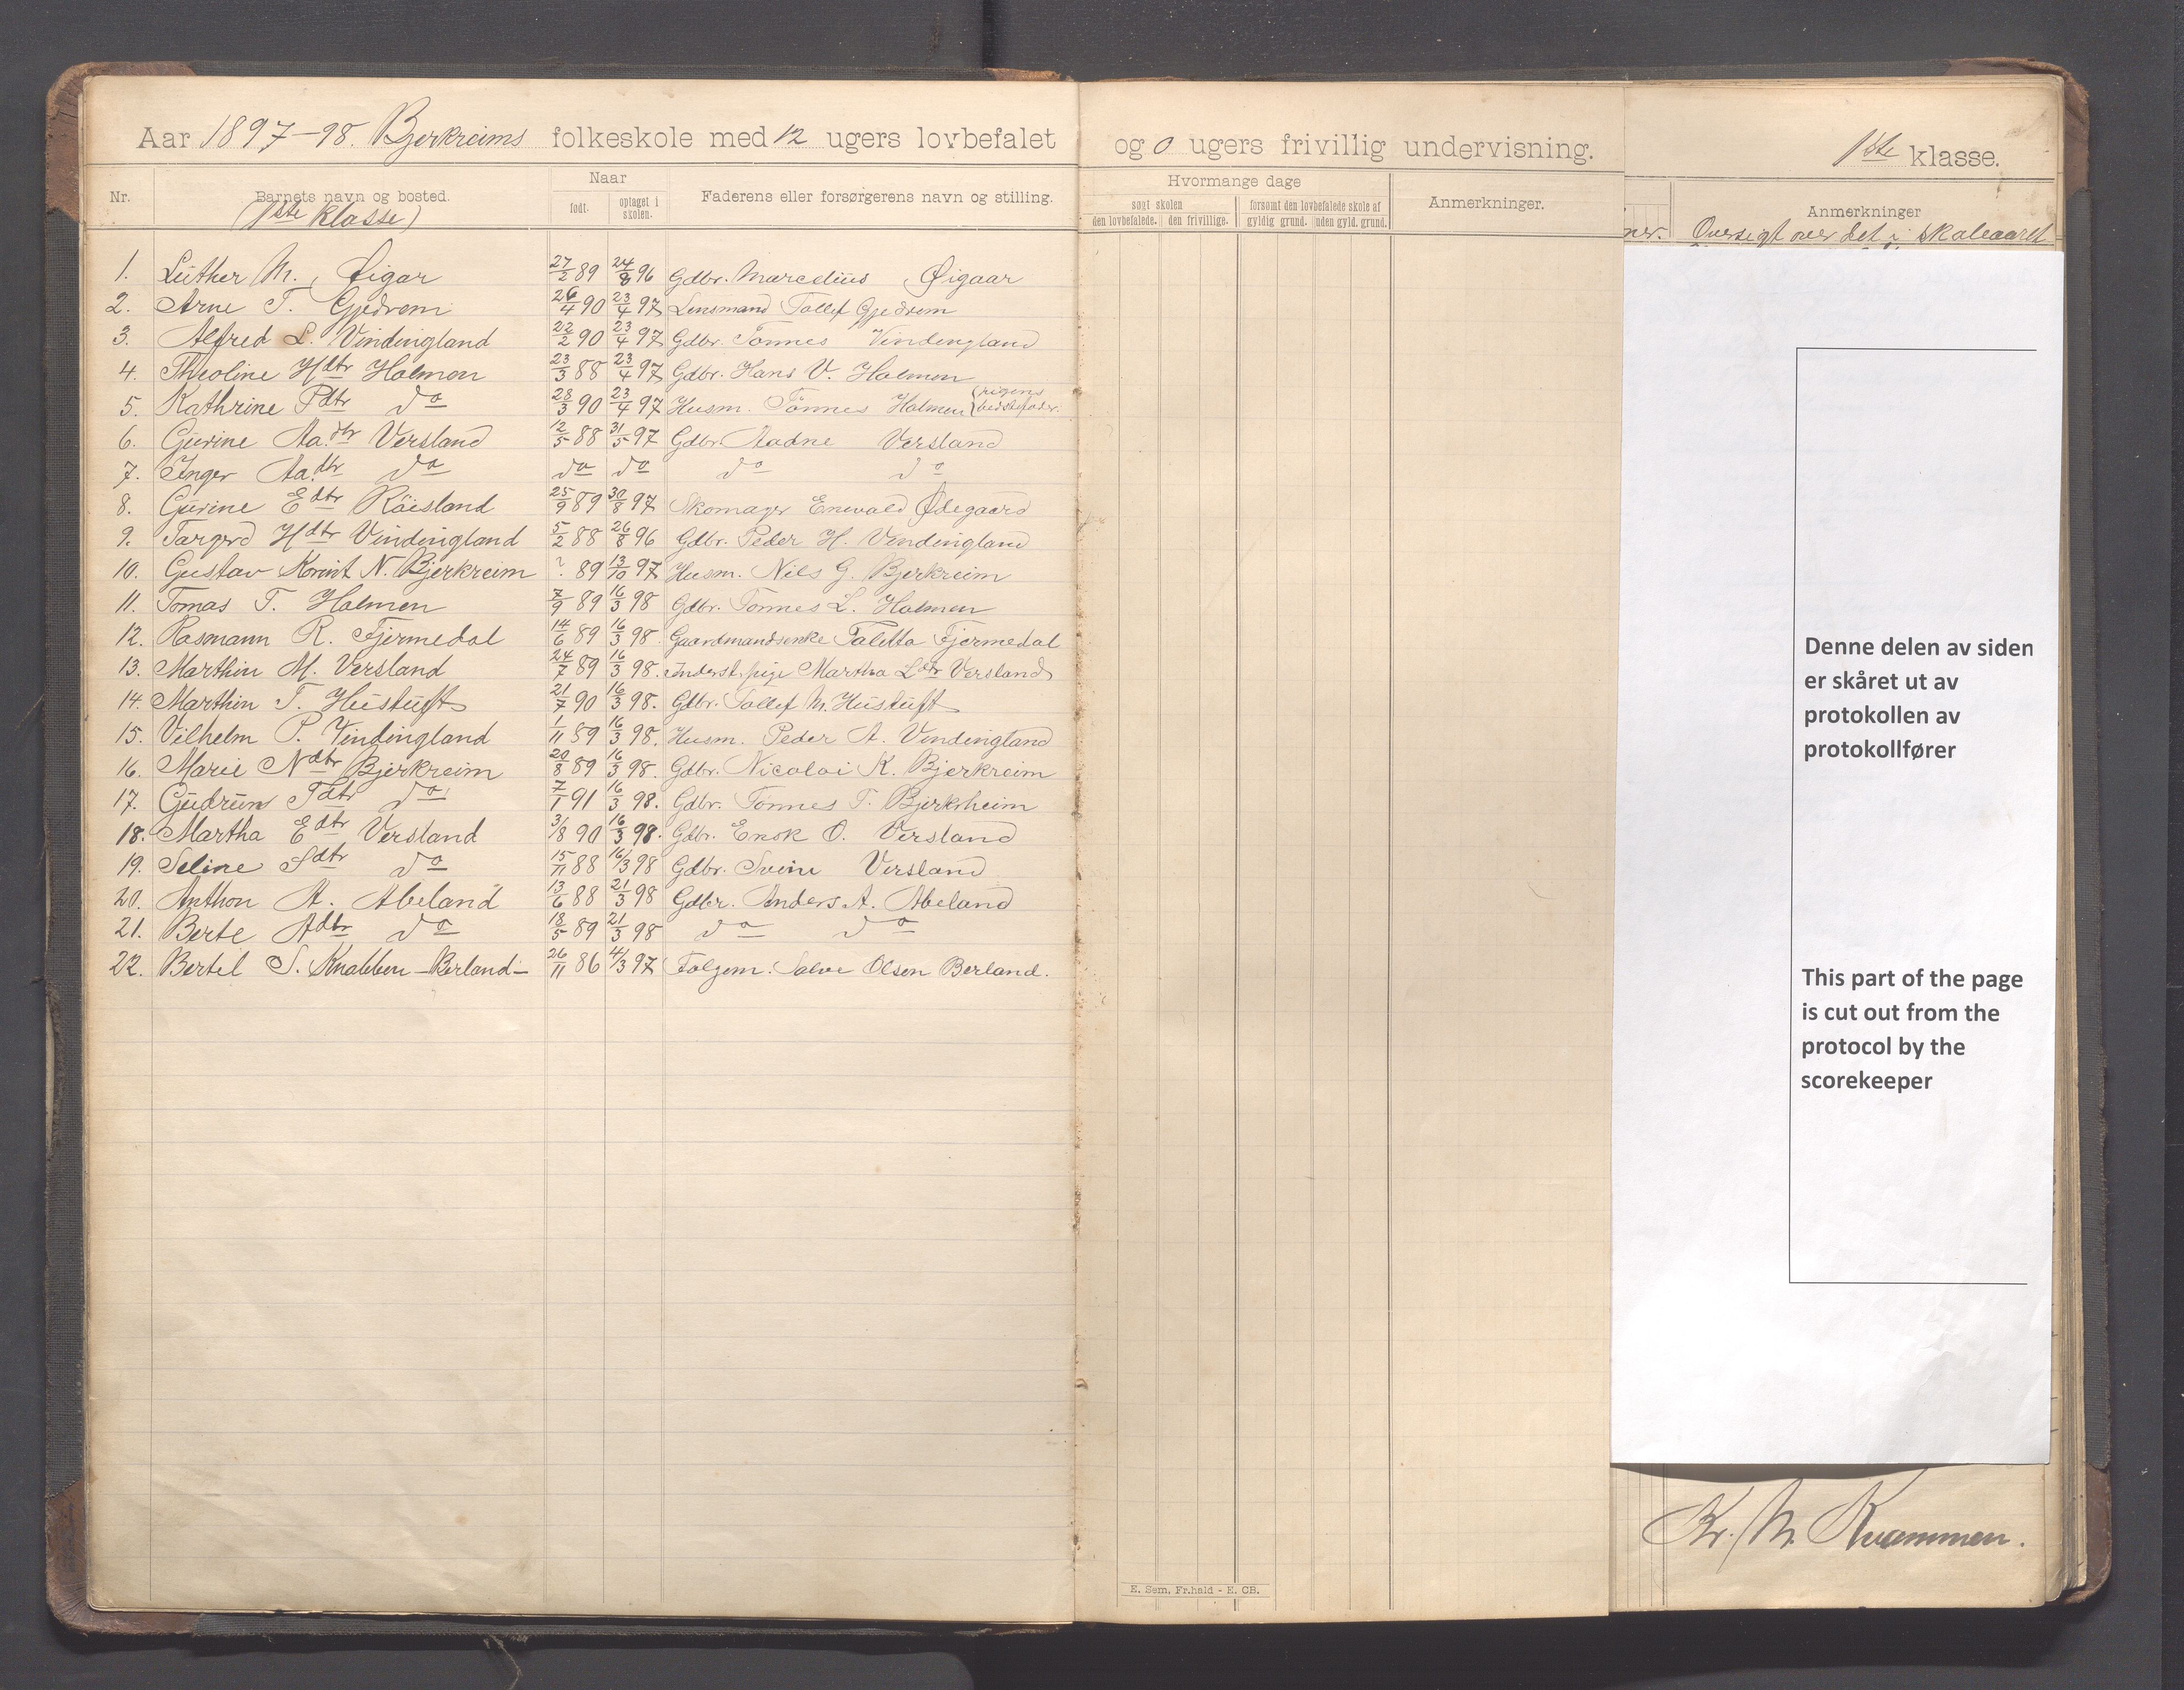 Aar 1897-98. Bjerkreims folkeskole med 12 ugers lovbefalet og 0 ugers frivillig undervisning.
1ste klasse.
Nr. Barnets navn og bosted. Naar født. optaget i skolen. Faderens eller forsørgerens navn og stilling.
(1ste klasse)
Hvormange dage
søgt skolen den lovbefalede. den frivillige.
forsømt den lovbefalede skole af gyldig grund. uden gyld. grund.
Anmerkninger.
Anmerkninger
Oversigt over det i skoleaaret
1. Luther M. Øigar 27/2 89 24/8 96 Gdbr. Marcelius Øigaar
2. Arne T. Gjedrem 26/4 90 23/4 97 Lensmand Tollef Gjedrem
3. Alfred L. Vindingland 22/2 90 23/4 97 Gdbr. Tønnes Vindingland
4. Theoline Hdtr Holmen 23/3 88 23/4 97 Gdbr. Hans V. Holmen
5. Kathrine Pdtr do 28/3 90 23/4 97 Husm. Tønnes Holmen (pigens bedstefader.
6. Gurine Aa.dtr Versland 12/5 88 31/5 97 Gdbr. Aadne Versland
7. Inger Aa.dtr do do do do do
8. Gurine Edtr Röisland 25/9 89 30/8 97 Skomager Enevald Ødegaard
9. Targerd Hdtr Vindingland 5/2 88 26/8 96 Gdbr. Peder H. Vindingland
10. Gustav N. Bjerkreim ? 89 13/10 97 Husm. Nils G. Bjerkreim
11. Tomas T. Holmen 7/9 89 16/3 98 Gdbr. Tønnes L. Holmen
12. Rasmann R. Fjermedal 14/6 89 16/3 98. Gaardmandsenke Taletta Fjermedal
13. Marthin M. Versland 24/7 89 16/3 98. Inderst. pige Martha Ldtr Versland
14. Marthin T. Hustuft 21/7 90 16/3 98. Gdbr. Tollef M. Hustuft
15. Vilhelm P. Vindingland 1/11 89 16/3 98. Husm. Peder A. Vindingland
16. Marie Ndtr Bjerkreim 20/8 89 16/3 98. Gdbr. Nicolai K. Bjerkreim
17. Gudrun Tdtr do 7/1 91 16/3 98. Gdbr. Tønnes T. Bjerkrheim
18. Martha Edtr Versland 31/8 90 16/3 98. Gdbr. Enok O. Versland
19. Seline Sdtr do 15/11 88 16/3 98 Gdbr. Svein Versland
20. Anthon A. Abeland 13/6 88 21/3 98 Gdbr. Anders A. Abeland
21. Berte Adtr do 18/5 89 21/3 98 do do
22. Bertel S. Knabben - Berland - 26/11 86 4/3 97 Følgem. Salve Olsen Berland.
Denne delen av siden
er skåret ut av
protokollen av
protokollfører
This part of the page
is cut out from the
protocol by the
scorekeeper
Kr. M. Kvammen.
E. Sem, Fr.hald - E. CB.